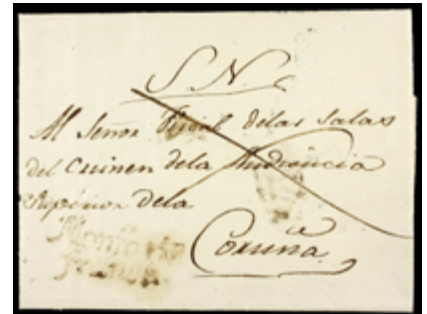 S. N.
Al Señor Fiscal delas Salas
del Crimen dela Audiencia
Superior dela
Coruña